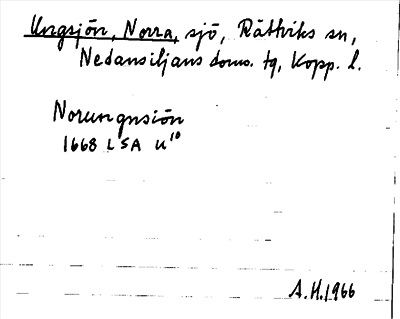 Ungsjön, Norra, sjö, Rättviks sn,
Nedansiljans doms. tg, Kopp. l.
Norungnsiön
1668 LSA U¹⁰
A.H.1966